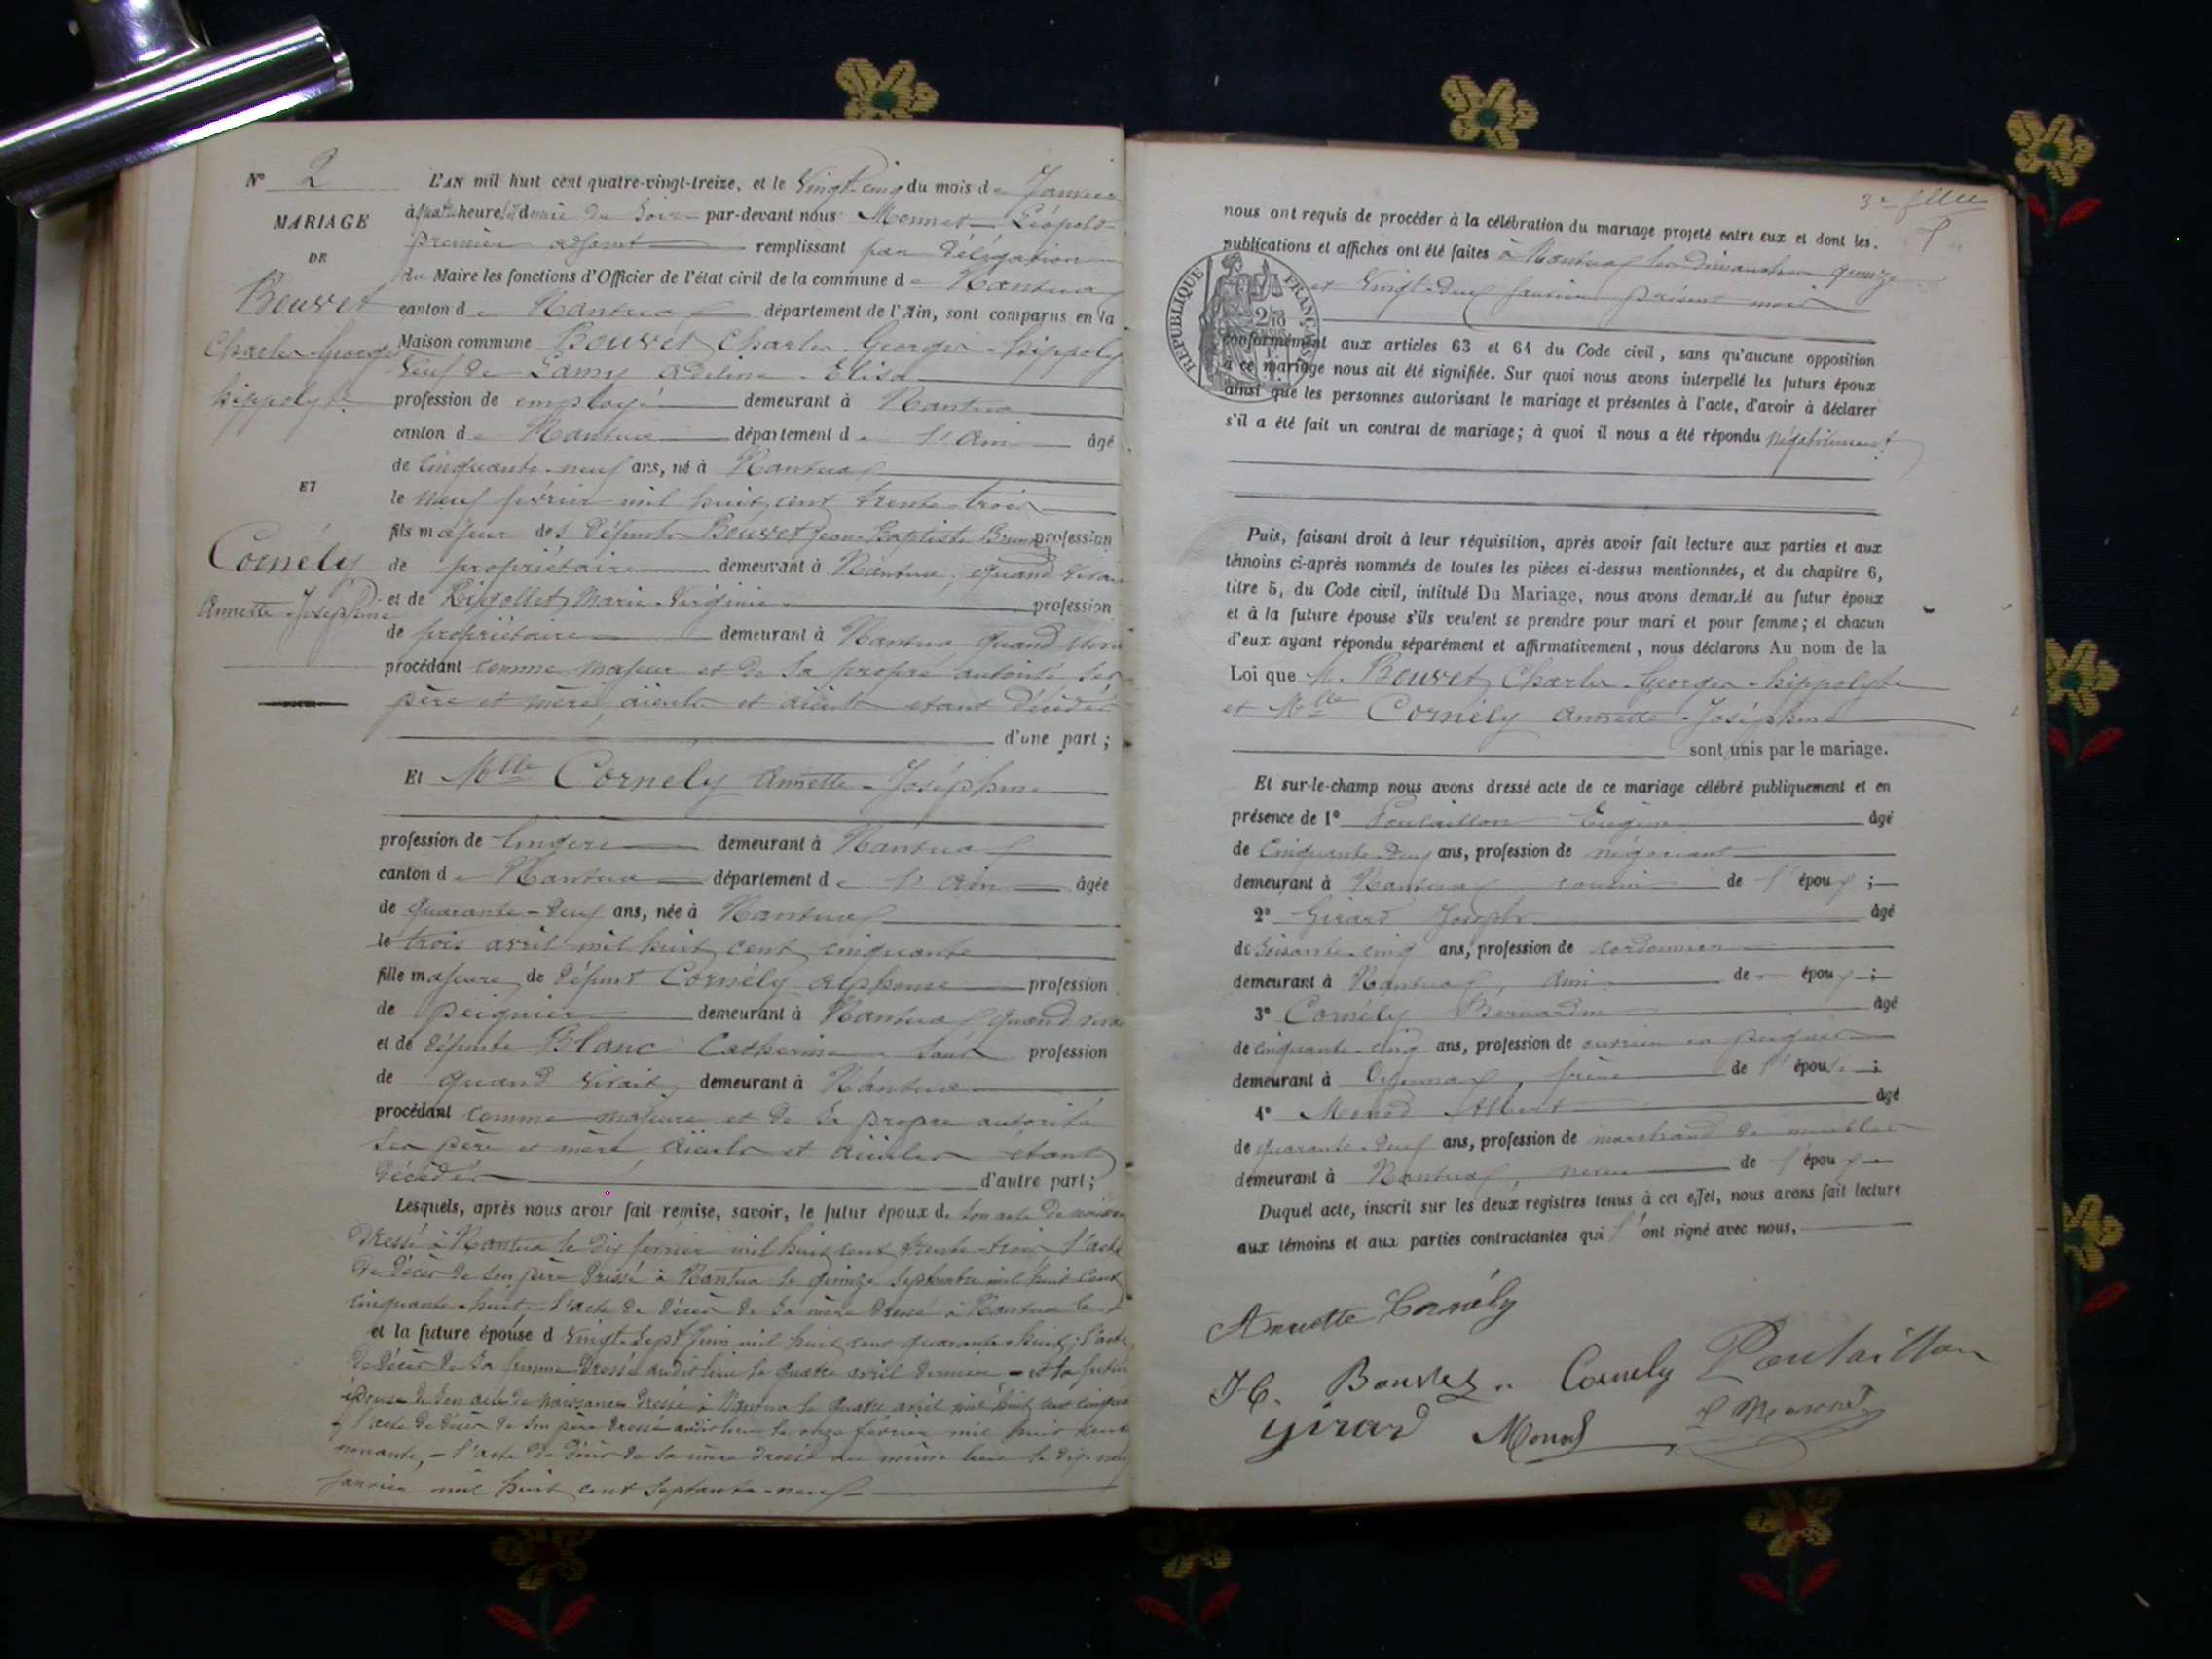 N° 2
MARIAGE
DE
Bouvet
Charles-Georges
hippolyte
ET
Cornély
Annette-Joséphine
L'AN mil huit cent quatre-vingt-treize, et le Vingt-cinq du mois de Janvier
à quatre heures et demie du soir par-devant nous Monnet Léopold
premier adjoint remplissant par délégation
du Maire les fonctions d'Officier de l'état civil de la commune de Nantua
canton de Nantua département de l'Ain, sont comparus en la
Maison commune Bouvet Charles-Georges-hippolyte
Veuf de Lamy Adeline-Elisa
profession de employé demeurant à Nantua
canton de Nantua département de l'Ain âgé
de cinquante-neuf ans, né à Nantua
le neuf février mil huit cent trente-trois
fils majeur des défunts Bouvet Jean-Baptiste profession
de propriétaire demeurant à Nantua, quand vivait
et de Marie-Virginie profession
de propriétaire demeurant à Nantua quand vivait
procédant comme majeur et de sa propre autorité ses
père et mère, aïeuls et aïeules étant décédés
d'une part;
Et Mlle Cornély Annette-Joséphine
profession de lingère demeurant à Nantua
canton de Nantua département de l'Ain âgée
de quarante-deux ans, née à Nantua
le trois avril mil huit cent cinquante
fille majeure de défunt Cornély Alphonse profession
de peignier demeurant à Nantua quand vivait
et de défunte Blanc Catherine sans profession
de quand vivait, demeurant à Nantua
procédant comme majeure et de sa propre autorité
ses père et mère, aïeuls et aïeules étant
décédés d'autre part;
Lesquels, après nous avoir fait remise, savoir, le futur époux de son acte de naissance
dressé à Nantua le dix février mil huit cent trente-trois, l'acte
de décès de son père dressé à Nantua le quinze septembre mil huit cent
cinquante-huit, l'acte de décès de sa mère dressé à Nantua le
et la future épouse d vingt-sept juin mil huit cent quarante-huit; l'acte
de décès de sa femme dressé audit lieu le quatre avril dernier, - et la future
épouse de son acte de naissance dressé à Nantua le quatre avril mil huit cent cinquante
l'acte de décès de son père dressé audit lieu le onze février mil huit cent
nonante, - l'acte de décès de sa mère dressé au même lieu le dix-neuf
janvier mil huit cent septante-neuf
3e flle
nous ont requis de procéder à la célébration du mariage projeté entre eux et dont les
publications et affiches ont été faites à Nantua les dimanches quinze
et vingt-deux janvier présent mois
RÉPUBLIQUE FRANÇAISE
conformément aux articles 63 et 64 du Code civil, sans qu'aucune opposition
à ce mariage nous ait été signifiée. Sur quoi nous avons interpellé les futurs époux
ainsi que les personnes autorisant le mariage et présentes à l'acte, d'avoir à déclarer
s'il a été fait un contrat de mariage; à quoi il nous a été répondu négativement
Puis, faisant droit à leur réquisition, après avoir fait lecture aux parties et aux
témoins ci-après nommés de toutes les pièces ci-dessus mentionnées, et du chapitre 6,
titre 5, du Code civil, intitulé Du Mariage, nous avons demandé au futur époux
et à la future épouse s'ils veulent se prendre pour mari et pour femme; et chacun
d'eux ayant répondu séparément et affirmativement, nous déclarons Au nom de la
Loi que M. Bouvet Charles-Georges-hippolyte
et Mlle Cornély Annette-Joséphine
sont unis par le mariage.
Et sur-le-champ nous avons dressé acte de ce mariage célébré publiquement et en
présence de 1° Poulaillon Eugène âgé
de cinquante-deux ans, profession de négociant
demeurant à Nantua cousin de l'époux;
2° Girard Joseph âgé
de soixante-cinq ans, profession de cordonnier
demeurant à Nantua, ami de époux;
3° Cornély Bernardin âgé
de cinquante-cinq ans, profession de ouvrier en peignes
demeurant à Oyonnax, frère de l'épouse;
4° Monod Albert âgé
de quarante-deux ans, profession de marchand de meubles
demeurant à Nantua, neveu de l'époux
Duquel acte, inscrit sur les deux registres tenus à cet effet, nous avons fait lecture
aux témoins et aux parties contractantes qui l'ont signé avec nous,
Annette Cornély
H. Bouvet Cornely Poulaillon
Girard Monod L Monnet